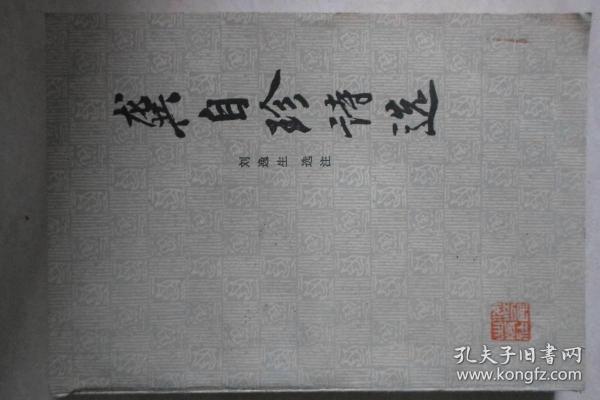 龚自珍诗选
刘逸生 选注
孔夫子旧书网
www.kongfz.com